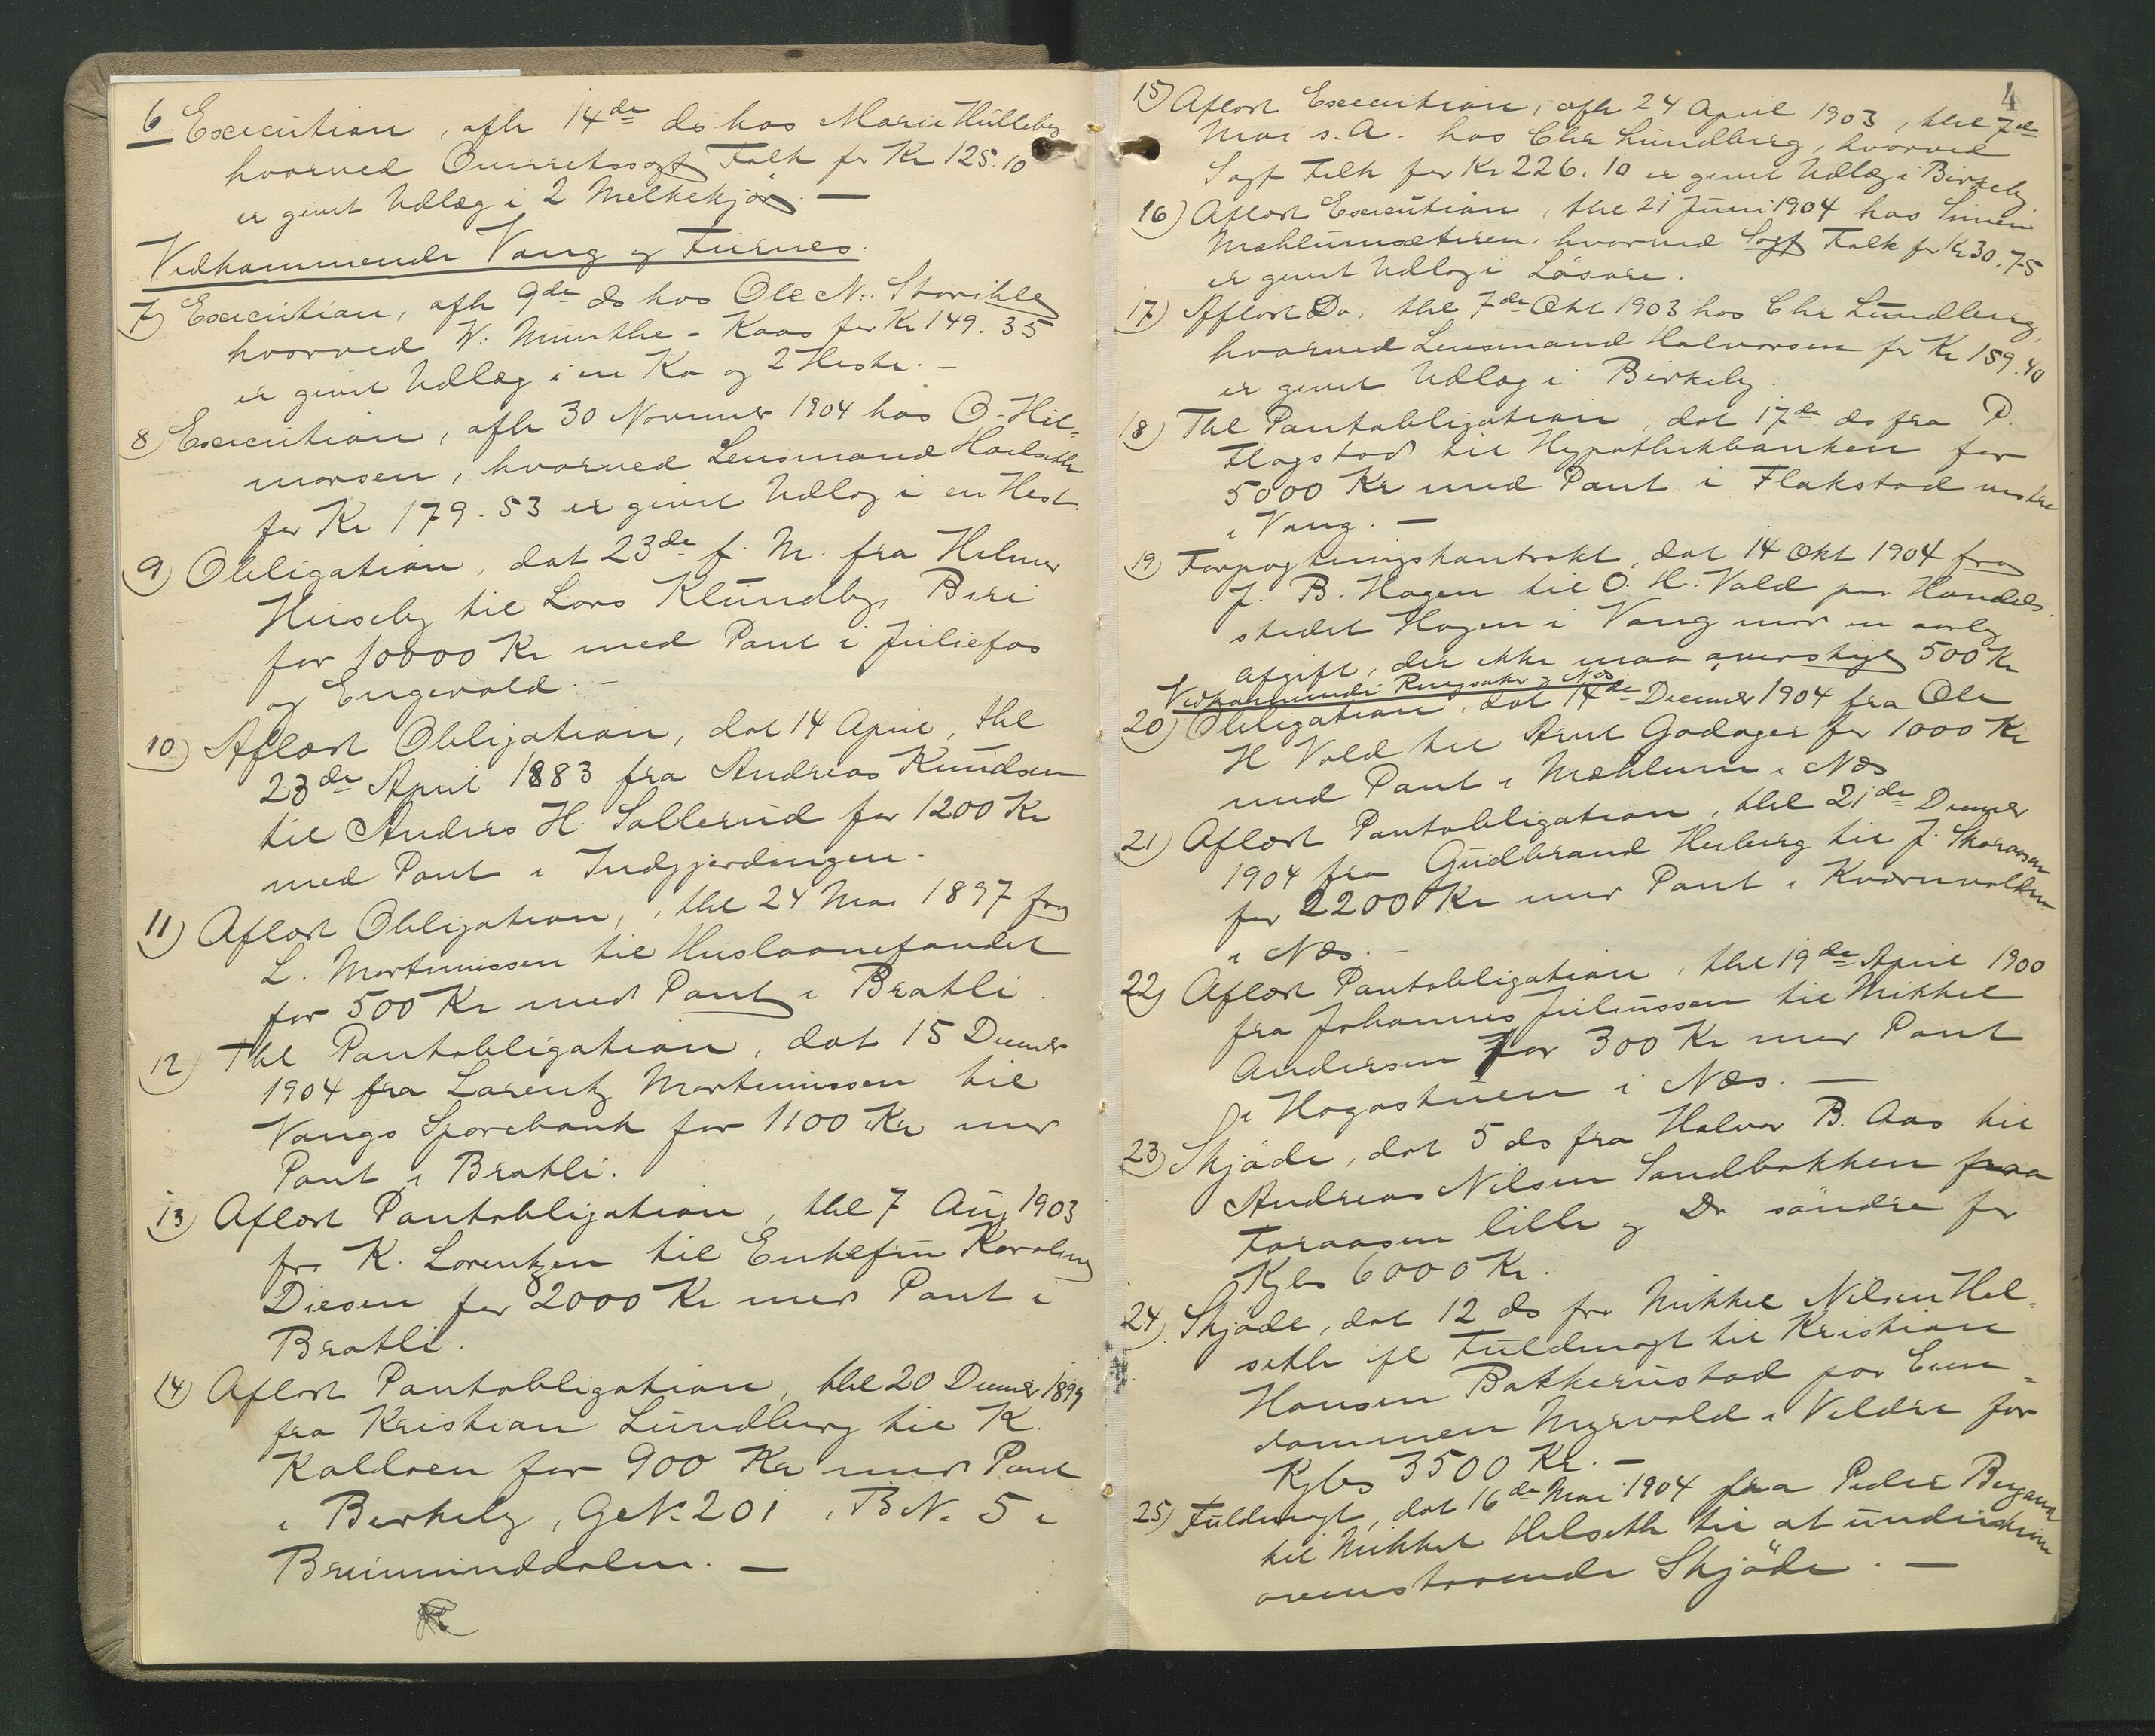 6 Execution, afh 14de ds hos Marie Hulleby
hvorved Overretssagf Falk for Kr 125.10
er givet Udlæg i 2 Melkekjør. —
Vedkommende Vang og Furnes:
7) Execution, afh 9de ds hos Ole N. Storihle
hvorved W. Munthe-Kaas for Kr 149.35
er givet Udlæg i en Ko og 2 Heste. –
8) Execution, afh 30 November 1904 hos O. Hil=
morsen, hvorved Lensmand
for Kr 179.53 er givet Udlæg i en Hest.
9) Obligation, dat 23de f. M. fra Helmer
Huseby til Lars Klundby, Biri
for 10000 Kr med Pant i Juliefos
og Engevold. –
10) Aflæst Obligation, dat 14 April, thl
23de April 1883 fra Andreas Knudsen
til Anders H. Sollerud for 1200 Kr
med Pant i Indgjerdingen.
11) Aflæst Obligation, thl 24 Mai 1897 fra
L. Martinussen til Huslaanefondet
for 500 Kr med Pant i Bratli.
12) Thl Pantobligation, dat 15 Decemb
1904 fra Lorentz Martinussen til
Vangs Sparebank for 1100 Kr med
Pant i Bratli.
13) Aflæst Pantobligation, thl 7 Aug 1903
fra K. Lorentzen til Enkefru Karoline
Diesen for 2000 Kr med Pant i
Bratli.
14) Aflæst Pantobligation, thl 20 Decemb 1899
fra Kristian Lundberg til K.
Kolloen for 900 Kr med Pant
i Birkely, G.N. 201, B.N. 5 i
Brumunddalen. —
4
15) Aflæst Execution, afh 24 April 1903, thl 7de
Mai s.A. hos Chr Lundberg, hvorved
Sagf Falk for Kr 226.10 er givet Udlæg i Birkely.
16) Aflæst Execution, thl 21 Juni 1904 hos Simen
Mæhlumsæteren, hvorved Sagf Falk for Kr 30.75
er givet Udlæg i Løsøre.
17) Aflæst Do, thl 7de Okt 1903 hos Chr Lundberg,
hvorved Lensmand Halvorsen for Kr 159.40
er givet Udlæg i Birkely.
18) Thl Pantobligation, dat 17de ds fra P.
Flagstad til Hypothekbanken for
5000 Kr med Pant i Flakstad vestre
i Vang. —
19) Forpagtningskontrakt, dat 14 Okt 1904 fra
J. B. Hagen til O. H. Vold paa Handels=
stedet Hagen i Vang mod en aarlig
Afgift, der ikke maa overstige 500 Kr
Vedkommende Ringsaker og Næs
20) Obligation, dat 14de Decemb 1904 fra Ole
H Vold til Arnt Godager for 1000 Kr
med Pant i Mæhlum i Næs
21) Aflæst Pantobligation, thl 21de Decemb
1904 fra Gudbrand Herberg til J. Skaraasen
for 2200 Kr med Pant i Kværnvolden
i Næs. –
22) Aflæst Pantobligation, thl 19de April 1900
fra Johannes Juliussen til Mikkel
Andersen for 300 Kr med Pant
i Hagastuen i Næs. —
23) Skjøde, dat 5 ds fra Halvor B. Aas til
Andreas Nilsen Sandbakken paa
Foraasen lille og Do søndre for
Kjbs 6000 Kr.
24) Skjøde, dat 12 ds fra Mikkel Nilsen Hel=
seth ifl Fuldmagt til Kristian
Hansen Bakkerustad paa Eien=
dommen Myrvold i Veldre for
Kjbs 3500 Kr. –
25) Fuldmagt, dat 16de Mai 1904 fra Peder
til Mikkel Helseth til at underskrive
ovenstaaende Skjøde. —